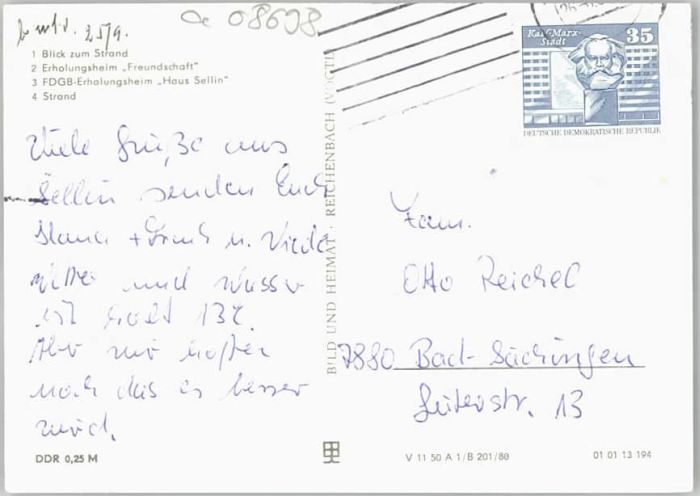 25/9.
08608
1 Blick zum Strand
2 Erholungsheim „Freundschaft"
3 FDGB-Erholungsheim „Haus Sellin"
4 Strand
Viele Grüße aus
Sellin senden Euch
+ Frank u.
Wetter und Wasser
ist kalt 13°C.
Aber wir hoffen
noch das es besser
wird.
DDR 0,25 M
BILD UND HEIMAT · REICHENBACH (VOGTL
Karl-Marx-
Stadt
35
DEUTSCHE DEMOKRATISCHE REPUBLIK
Fam.
Otto Reichel
7880 Bad-Säckingen
Leiterstr. 13
V 11 50 A 1/B 201/80
01 01 13 194